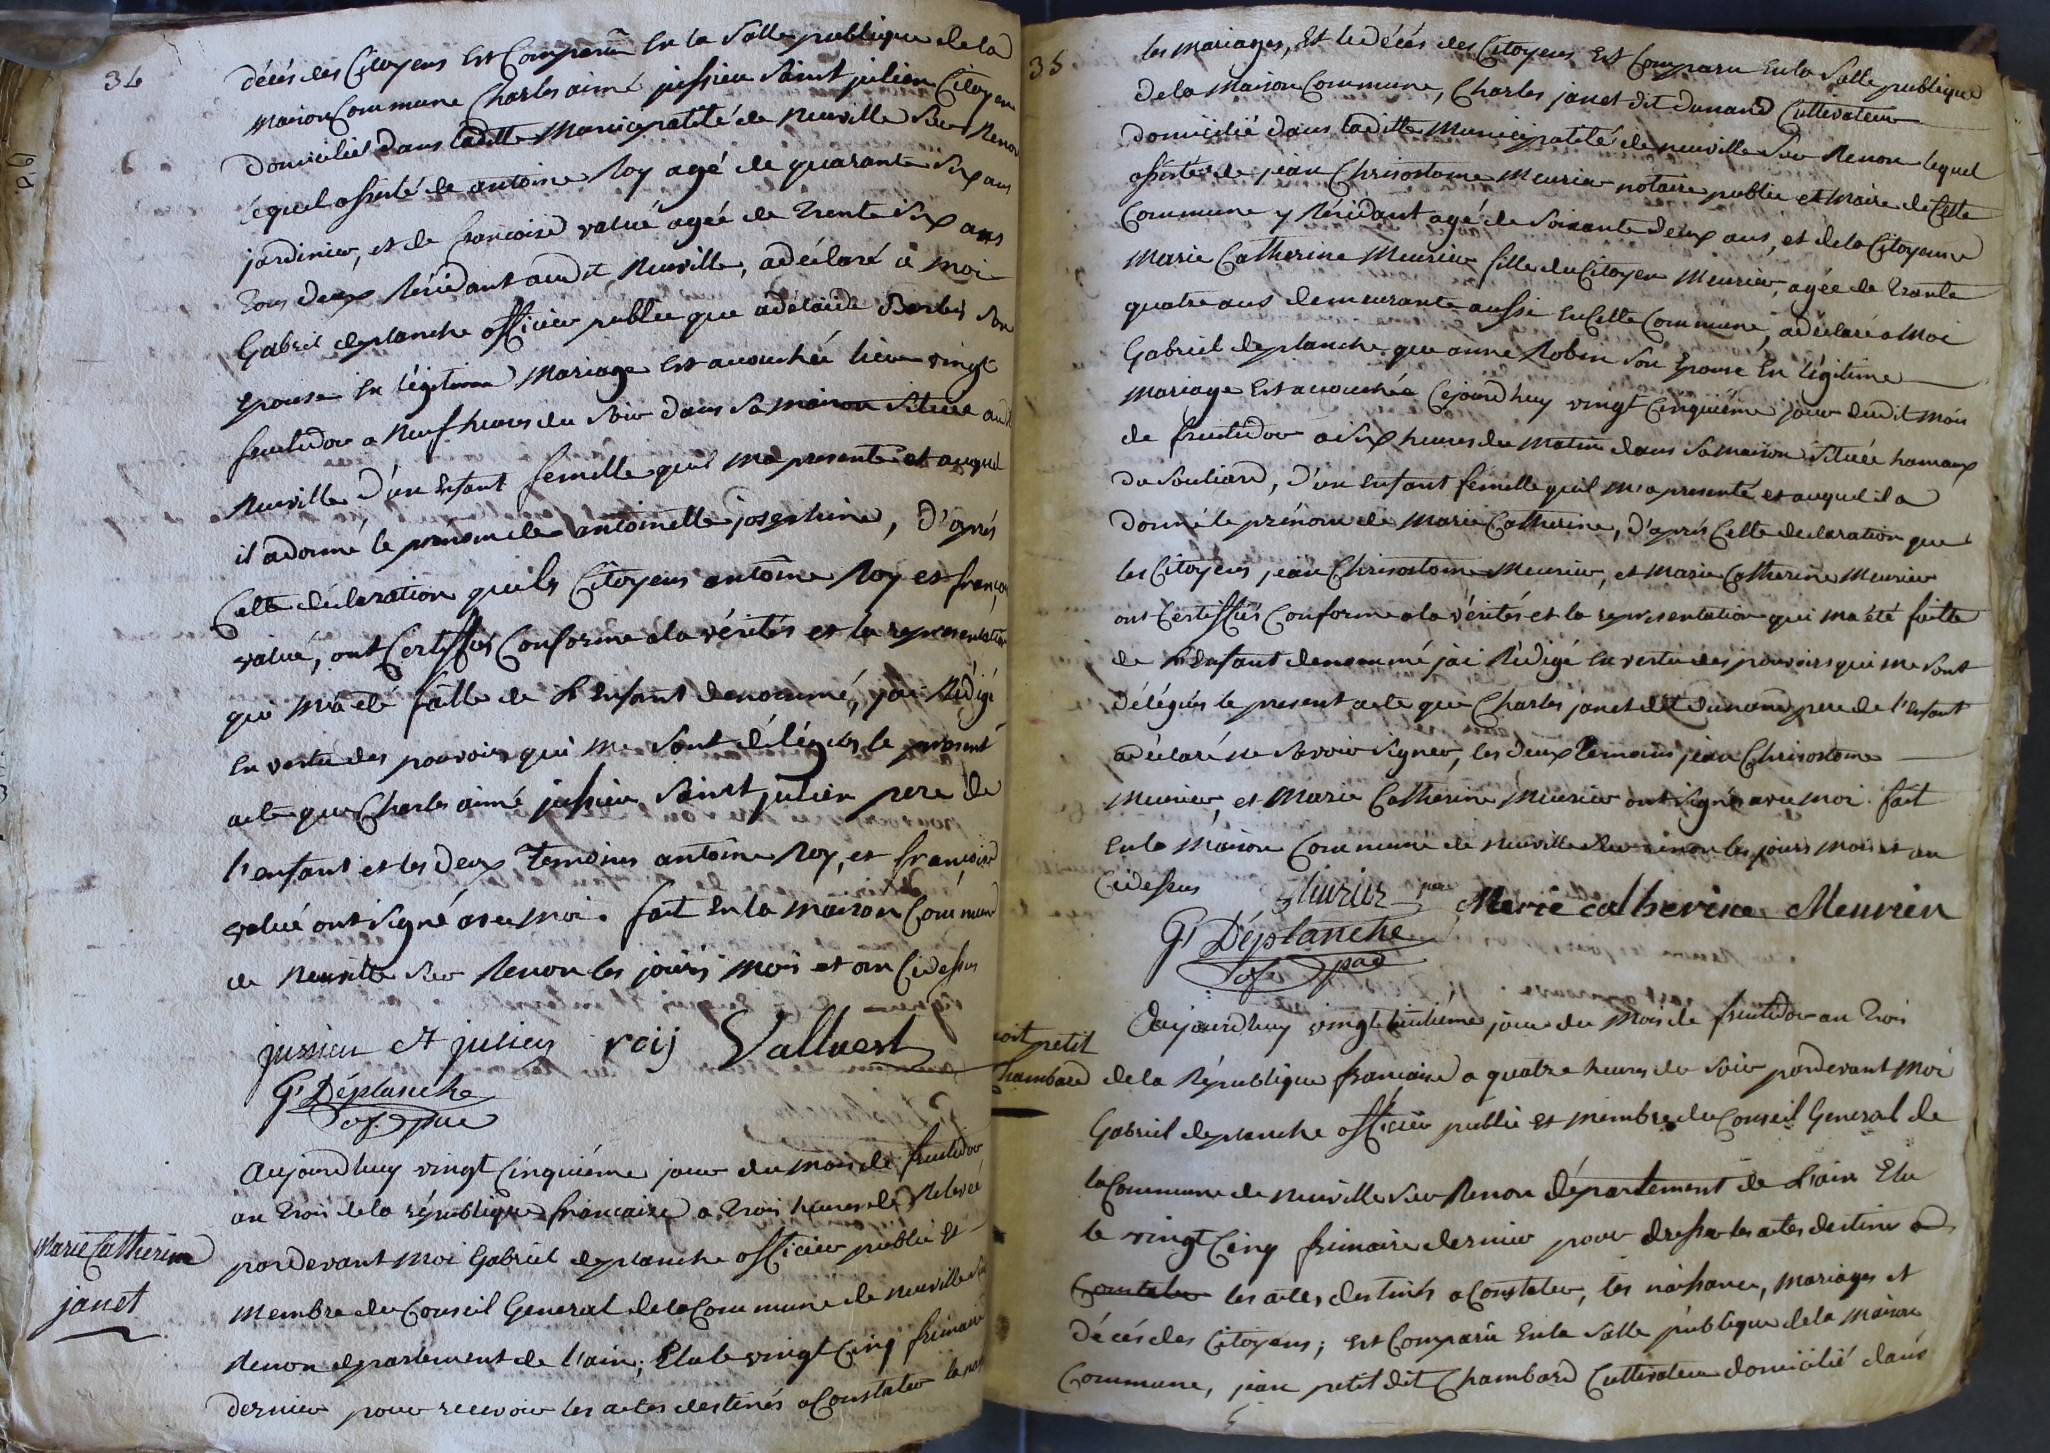 34
décés des Citoyens est Comparu En la Salle publique de la
maison Commune Charles aimé jussieu Saint julien Citoyen
domicilié dans laditte Municipalité de neuville Sur Renon
lequel assisté de antoine Roy agé de quarante Six ans
jardinier, et de francoise valué agée de trente Six ans
tous deux Résidant audit Neuville, a déclaré à moi
Gabriel deplanche officier public que adelaide Son
Epouse En légitime Mariage est accouchée hier vingt
fructidor a Neuf heures du Soir dans Sa maison Située audit
Neuville, d'un Enfant femelle quil ma presenté et auquel
il a donné le prenom de antoinette josephine, d'après
Cette déclaration que les Citoyens antoine Roy et
valué, ont Certiffiés Conforme a la vérités et la representation
qui m'a été faitte de L'enfant denommé, j'ai Rédigé
En vertu des pouvoirs qui me Sont délégués le present
acte que Charles aimé jussieu Saint julien pere de
l'enfant et les deux temoins antoine Roy, et françoise
valué ont Signé avec moi. fait En la maison Commune
de Neuville Sur Renon les jours mois et an Cidessus
jussieu St julien roij Valluest
Gl Déplanche
of. pue
Marie Catherine
janet
Aujourdhuy vingt Cinquiéme jour du mois de fructidor
an trois de la république francaise a trois heures de Relevée
pardevant moi Gabriel deplanche officier public Et
membre du Conseil General de la Commune de neuville Sur
Renon departement de l'ain; Elu le vingt Cinq frimaire
dernier pour recevoir les actes destinés a Constater
35
les mariages, Et le décés des Citoyens Est Comparu En la Salle publique
de la Maison Commune, Charles janet dit dunand Cultivateur
domicilié dans laditte Municipalité de neuville Sur Renon lequel
assisté de jean Chrisostome Meurier notaire public et Maire de Cette
Commune y Résidant agé de Soixante deux ans, et de la Citoyenne
Marie Catherine Meurier fille du Citoyen Meurier, agée de trante
quatre ans demeurante aussi En Cette Commune, a déclaré a Moi
Gabriel deplanche que anne Robin Son Epouse En légitime
mariage Est accouchée Cejourdhuy vingt Cinquiéme jour dudit mois
de fructidor a Six heures du Matin dans Sa maison Située hamaux
du Souliard, d'un Enfant femelle quil m'a presenté et auquel il a
donné le prénom de Marie Catherine, d'après Cette declaration que
les Citoyens jean Chrisostome Meurier, et Marie Catherine Meurier
ont Certiffiés Conforme a la vérités et la representation qui ma été faitte
de L'Enfant denommé j'ai Rédigé En vertu des pouvoirs qui me Sont
délégués le present acte que Charles janet dit dunand pere de l'Enfant
a déclaré ne Savoir Signer, les deux temoins jean Chrisostome
Meurier, et Marie Catherine Meurier ont Signé avec moi. fait
En la Maison Commune de Neuville Sur renon les jours Mois et an
Cidessus
Meurier pere Marie catherine Meurier
Gl Déplanche
of. pue
petit
Chambard
Aujourdhuy vingt huitiéme jour du Mois de fructidor an trois
de la République francaise a quatre heures du Soir pardevant Moi
Gabriel deplanche officier public Et membre du Conseil General de
la Commune de neuville Sur Renon département de L'ain Elu
le vingt Cinq frimaire dernier pour dresser les actes destiné a
Constater les actes destinés a Constater, les naissance, mariages et
décés des Citoyens; est Comparu En la Salle publique de la maison
Commune, jean petit dit Chambard Cultivateur domicilié dans